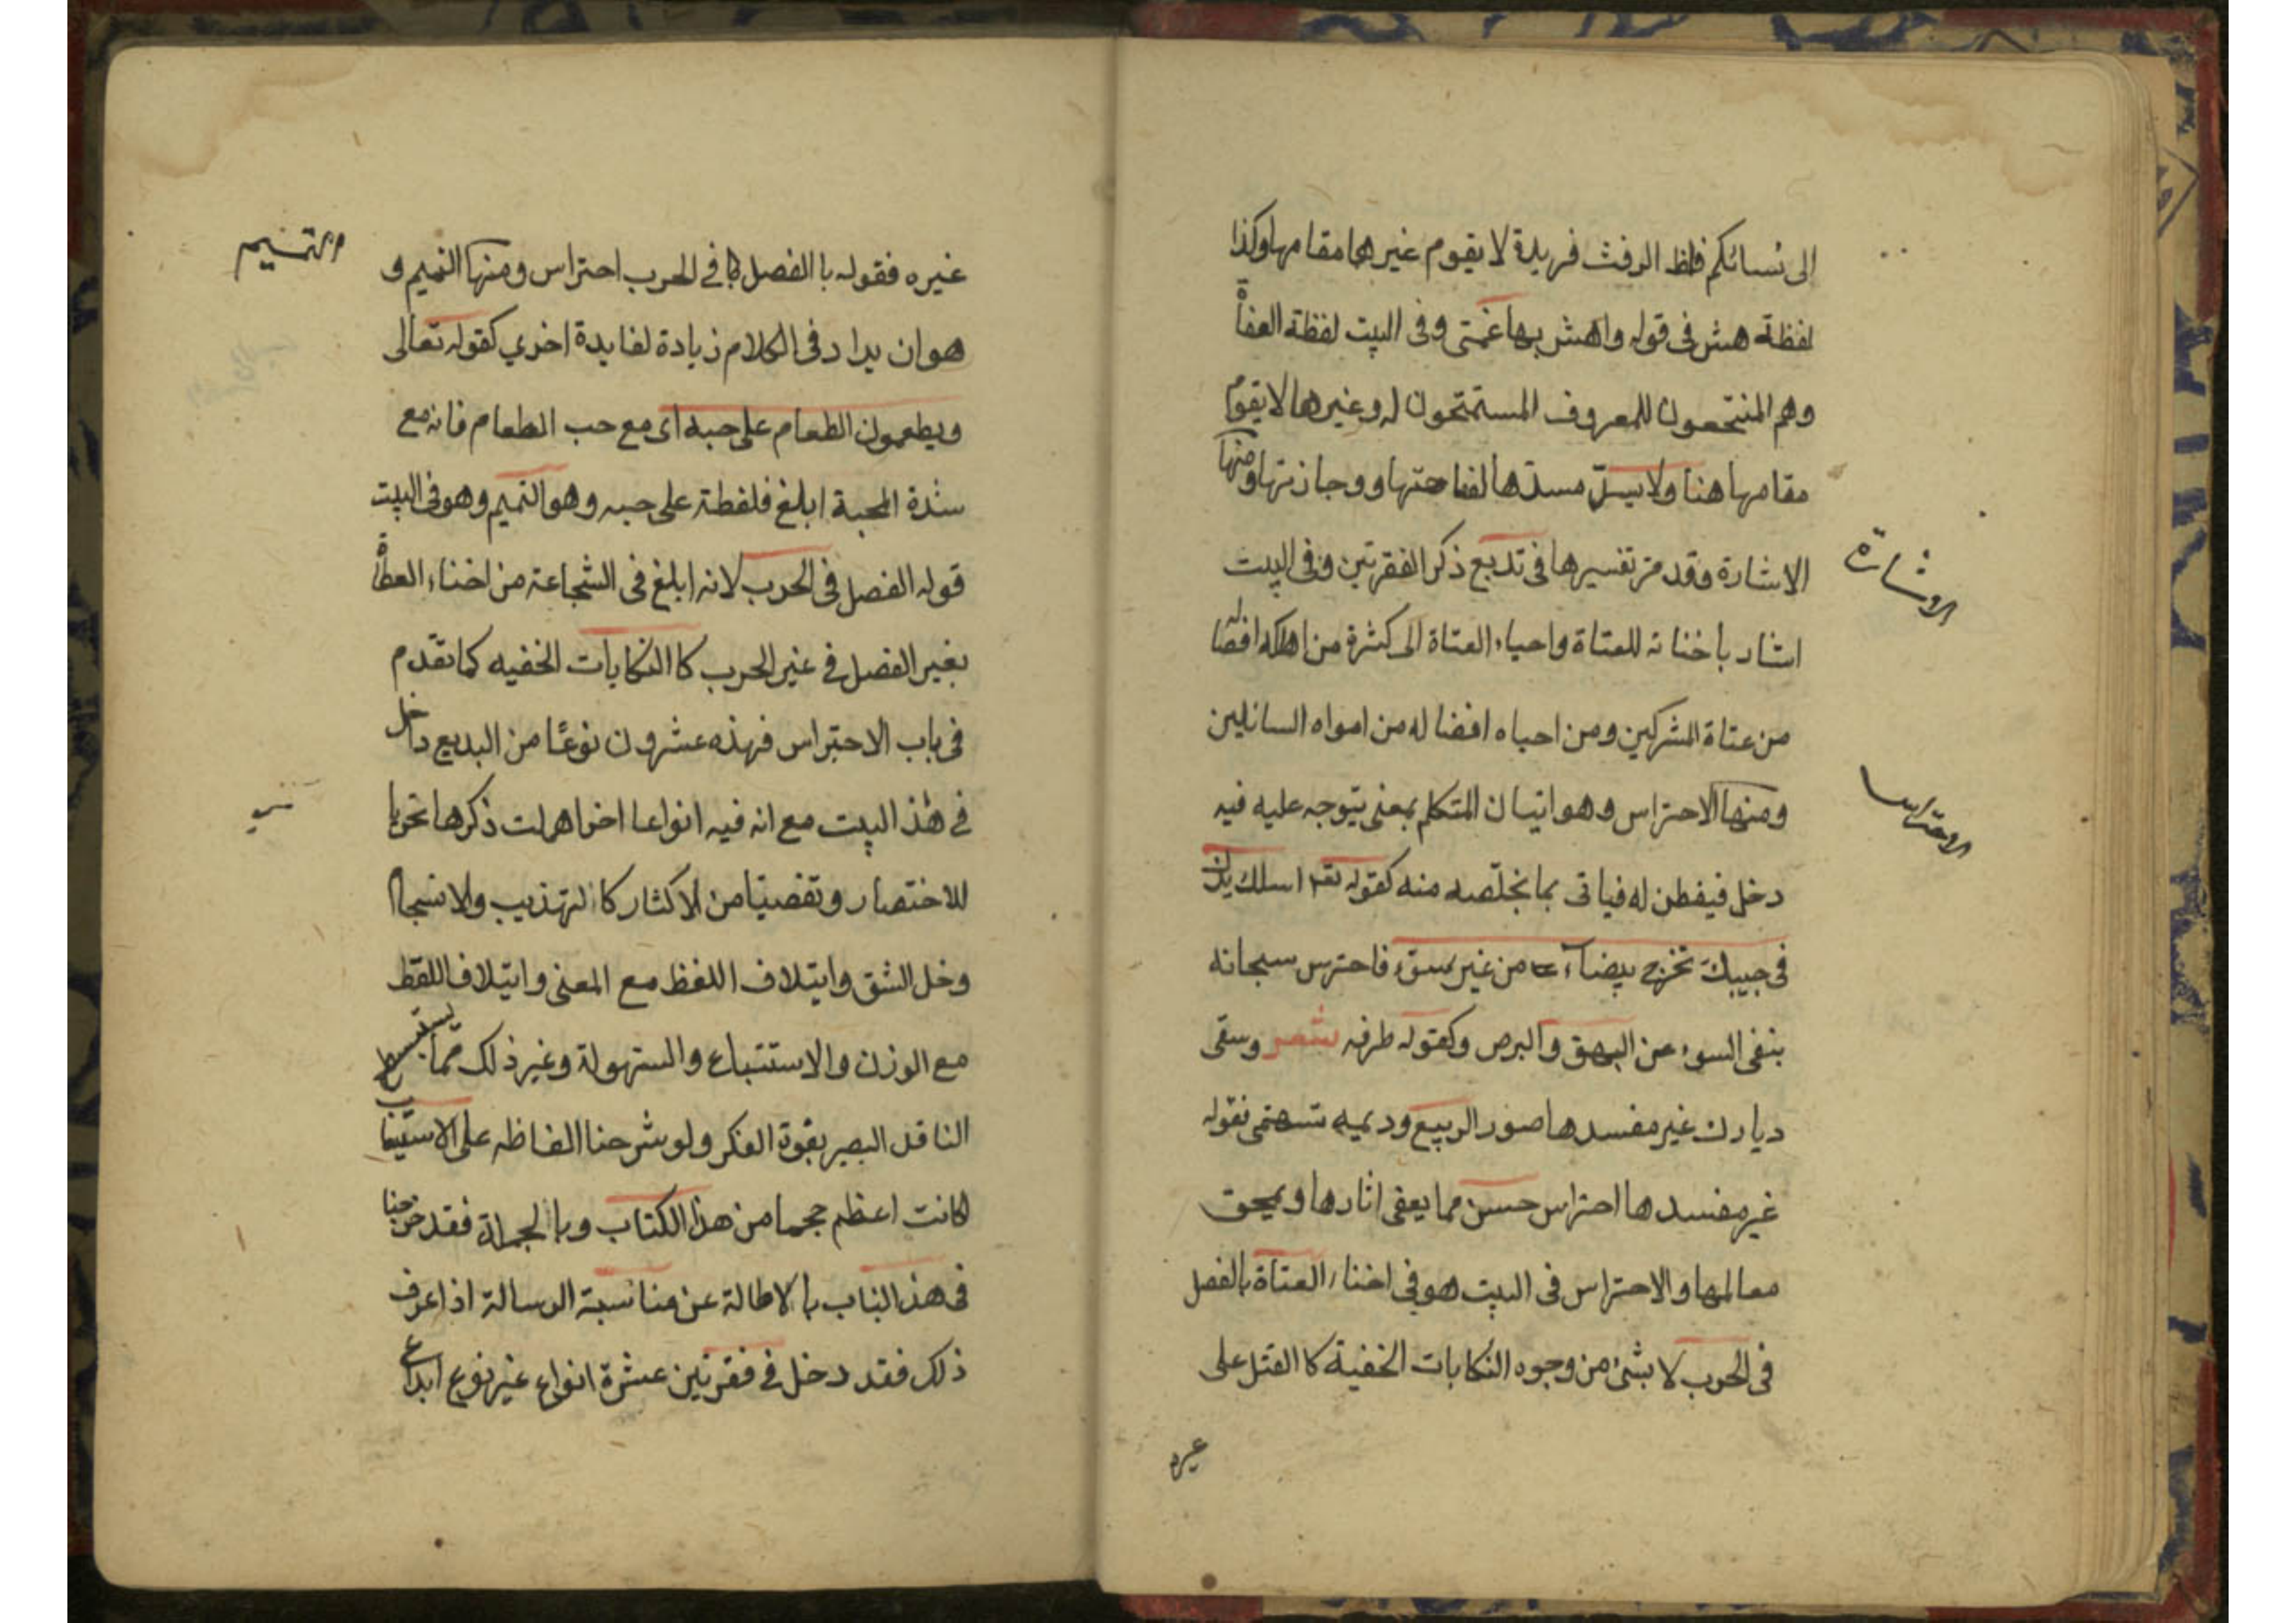 الى نسائكم فلفظ الرفث فريدة لا يقوم غيرها مقامها وكذا
لفظة هش في قوله واهش بها على غنمى وفى البيت لفظة العفاة
وهم المنتجعون للمعروف المستمنحون له وغيرها لا يقوم
مقامها هنا ولا يسدّ مسدّها لفصاحتها ووجازتها ومنها
الاشارة وقد مر تفسيرها في تدبيع ذكر الفقرتين وفى البيت
اشار بافنائه للعتاة واحياء العفاة الى كثرة من اهلكه افضاله
من عتاة المشركين ومن احياه افضاله من امواه السائلين
ومنها الاحتراس وهو اتيان المتكلم بمعنى يتوجه عليه فيه
دخل فيفطن له فياتى بما يخلّصه منه كقوله تعا اسلك يدك
فى جيبك تخرج بيضآء من غير سوء فاحترس سبحانه
بنفى السوء عن البهق والبرص وكقوله طرفه شعر وسقى
ديارك غير مفسدها صور الربيع وديمه تهمى فقوله
غير مفسدها احتراس حسن مما يعفى اثارها ويمحق
معالمها والاحتراس فى البيت هو فى افناء العتاة بالفصل
فى الحرب لا بشئ من وجوه النكايات الخفية كا القتل على
غيره
الاشارة
الاحتراس
غيره فقوله با الفصل كا فى الحرب احتراس ومنها التميم و
هوان يراد فى الكلام زيادة لفايدة اخرى كقوله تعالى
ويطعمون الطعام على حبه اى مع حب الطعام فانه مع
شدة المحبة ابلغ فلفظة على حبه وهو التميم وهو فى البيت
قوله الفصل فى الحرب لانه ابلغ فى الشجاعة من افناء العطاة
بغير الفصل فى غير الحرب كا النكايات الخفيه كما تقدم
فى باب الاحتراس فهذه عشرون نوعًا من البديع داخل
فى هذ البيت مع انه فيه انواعا اخر اهملت ذكرها تحريا
للاختصار وتفصيا من الاكثار كا التهذيب والانسجام
وخل الشق وايتلاف اللفظ مع المعنى وايتلاف اللفظ
مع الوزن والاستتباع والسهولة وغير ذلك مما يستنبط
الناقد البصير بقوة الفكر ولو شرحنا الفاظه على الاستيفا
لكانت اعظم حجما من هذا الكتاب وبا الجملة فقد خرجنا
فى هذ الباب با الاطالة عن مناسبة الرسالة اذا عرف
ذلك فقد دخل فى فقرتين عشرة انواع غير نوع ابداع
والتميم